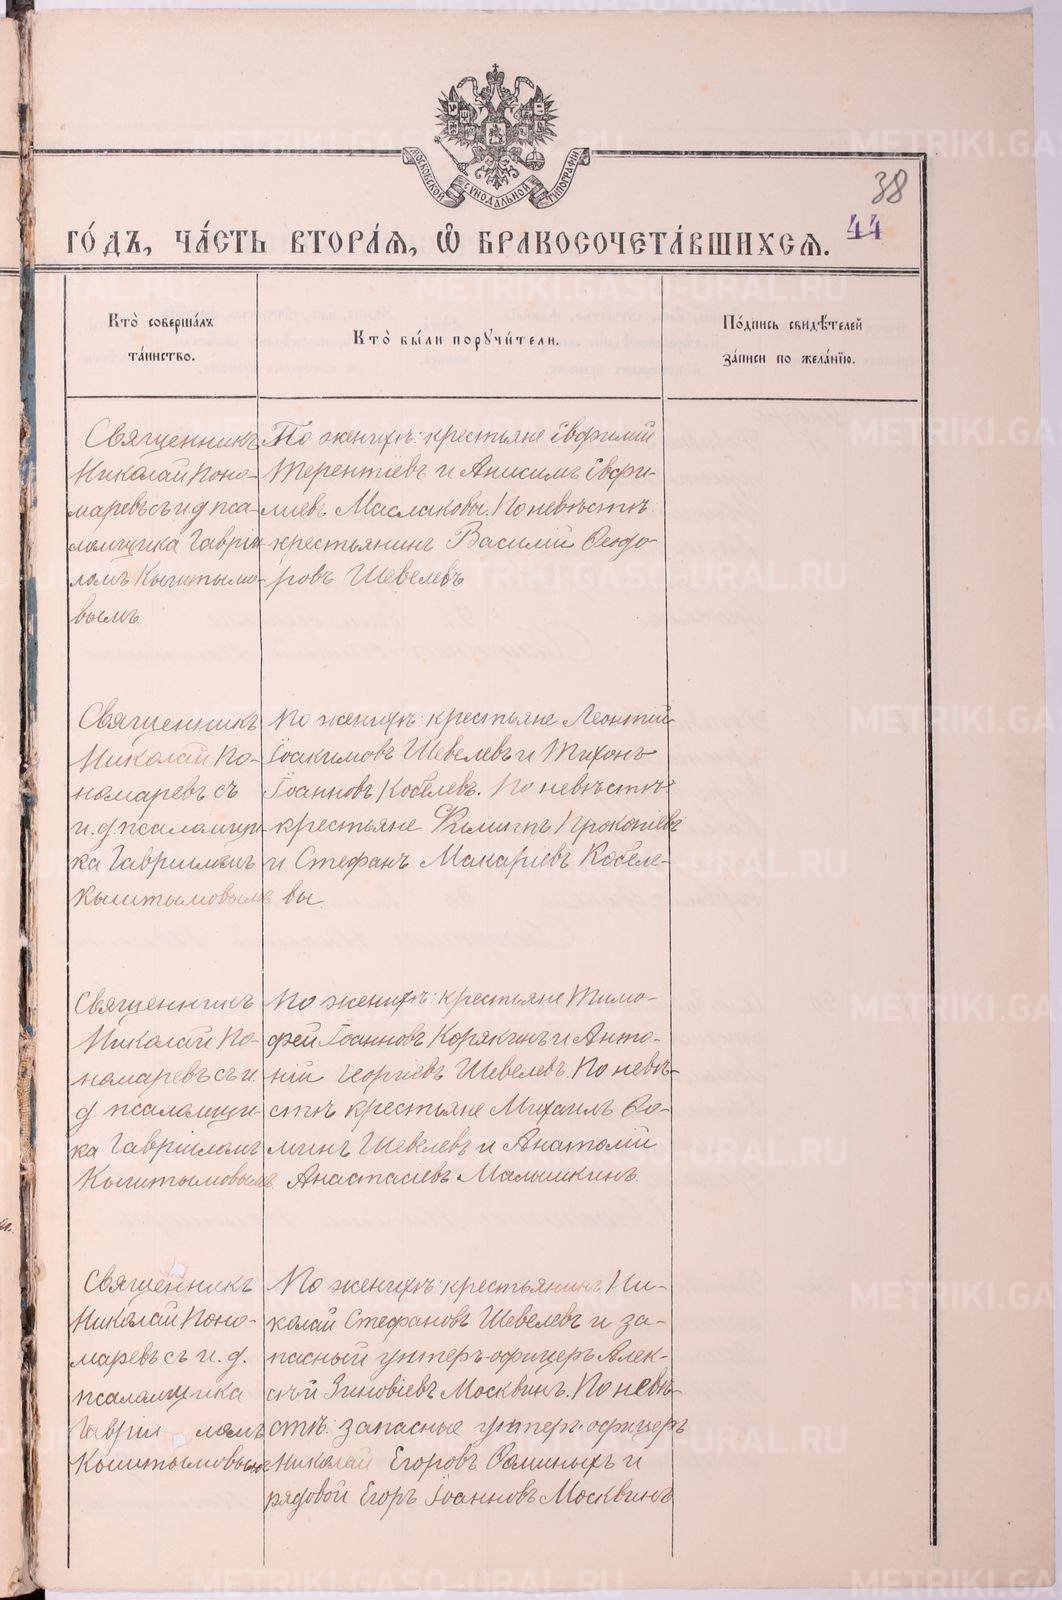 МОСКОВСКОЙ СУНОДАЛЬНОЙ ТИПОГРАФІИ
38
44
ГО́ДЪ, ЧА́СТЬ ВТОРА́Ѧ, Ѡ҆ БРАКОСОЧЕТА́ВШИХСѦ.
Кто̀ соверша́лъ
та́инство.
Кто̀ бы́ли порꙋчи́тели.
По́дпись свидѣ́телей
за́писи по жела́нїю.
Священникъ
Николай Поно-
маревъ съ и д пса-
ломщика Гавріи
ломъ Кыштымо-
вымъ.
По женихѣ: крестьяне Евфимій
Терентіевъ и Анисимъ Евфи-
міевъ Маслаковы. По невѣстѣ:
крестьянинъ Василій Ѳеодо-
ровъ Шевелевъ
Священникъ
Николай По-
номаревъ съ
и. д. псаломщи-
ка Гавріиломъ
Кыштымовымъ
По женихѣ: крестьяне Леонтій
Іоакимовъ Шевелевъ и Тихонъ
Іоанновъ Кобелевъ. По невѣстѣ:
крестьяне Филиппъ Прокопіевъ
и Стефанъ Макаріевъ Кобеле-
вы.
Священникъ
Николай По-
номаревъ съ и.
д. псаломщи-
ка Гавріиломъ
Кыштымовымъ.
По женихѣ: крестьяне Тимо-
фей Іоанновъ Корякинъ и Анто-
ній Георгіевъ Шевелевъ. По невѣ-
стѣ крестьяне Михаилъ Ѳо-
минъ Шевелевъ и Анатолій
Анастасіевъ Малышкинъ.
Священникъ
Николай Поно-
маревъ съ и. д.
псаломщика
Гавріи ломъ
Кыштымовымъ
По женихѣ: крестьянинъ Ни-
колай Стефановъ Шевелевъ и за-
пасный унтеръ-офицеръ Алек-
сѣй Зиновіевъ Москвинъ. По невѣ-
стѣ: запасные унтеръ-офицеръ
Николай Егоровъ Ѳоминыхъ и
рядовой Егоръ Іоанновъ Москвинъ
METRIKI.GASO-URAL.RU